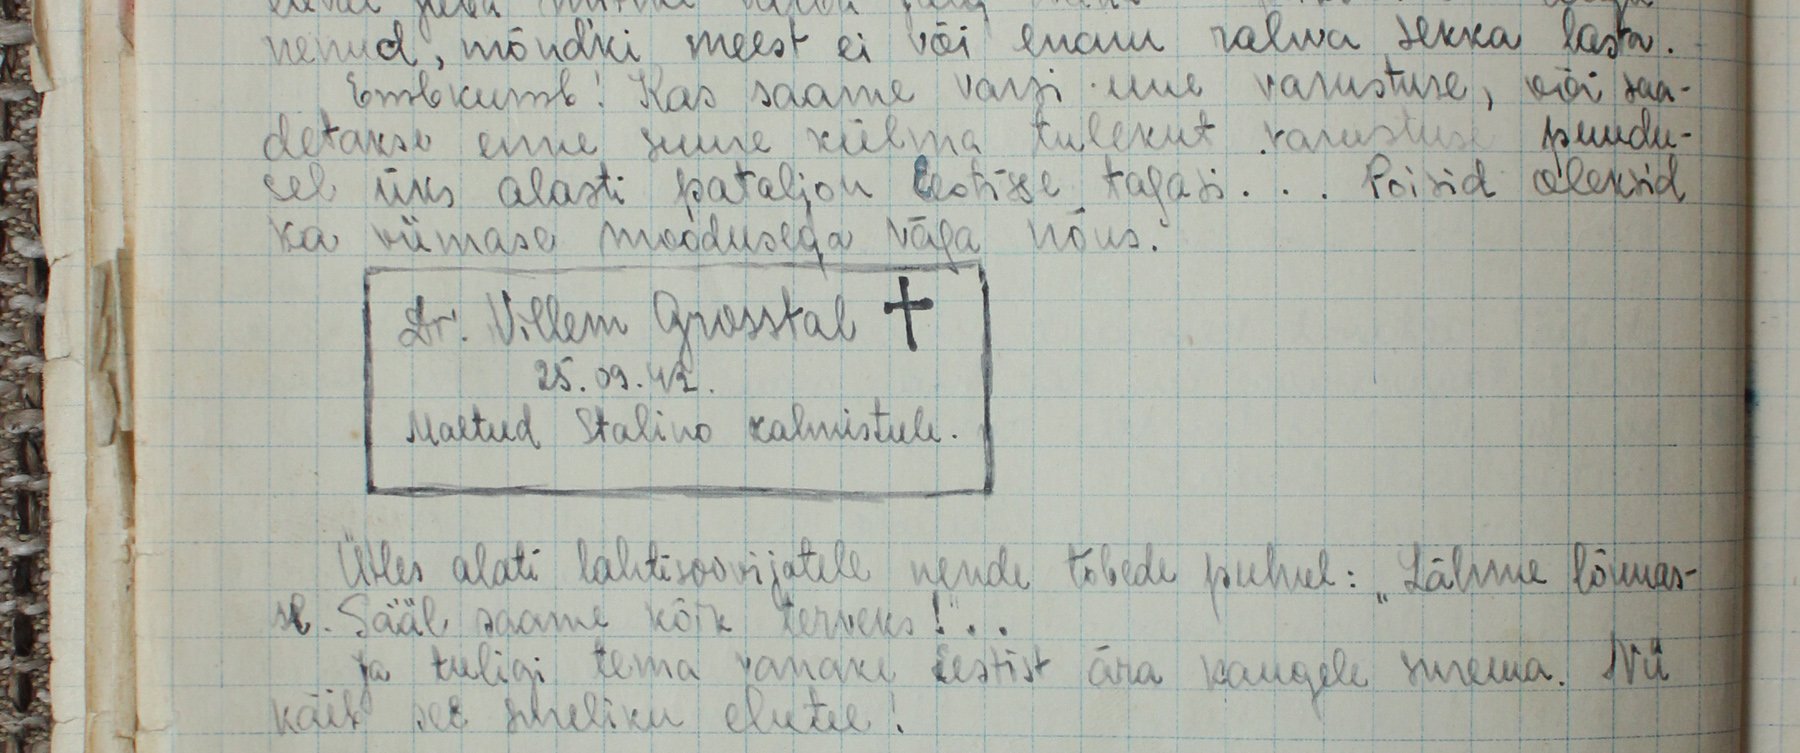 nenud, mõndki meest ei või enam rahva sekka lasta.
Emb kumb! Kas saame varsi uue varustuse, või saa-
detakse enne suure külma tulekut varustuse puudu-
sel üks alasti pataljon Eestisse tagasi... Poisid oleksid
ka viimase moodusega väga nõus.
Dr. Villem Grosstal ✝
25.09.42.
Maetud Stalino kalmistule.
Ütles alati lahtisoovijatele nende tõbede puhul: „Lähme lõunas-
se. Sääl saame kõik terveks!"..
Ja tuligi tema vanake Eestist ära kaugele surema. Nii
käib see sureliku elutee!